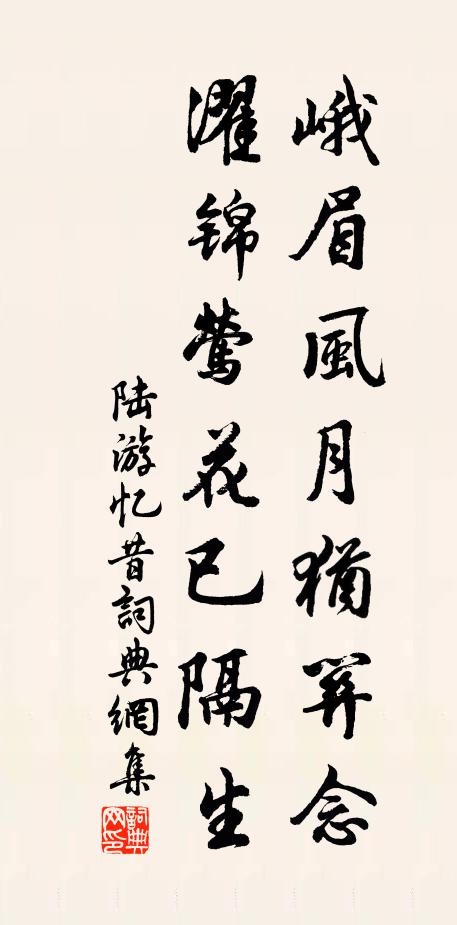 峨眉風月猶関念
濯锦莺花已隔生
陆游忆昔詞典網集
詞典網印